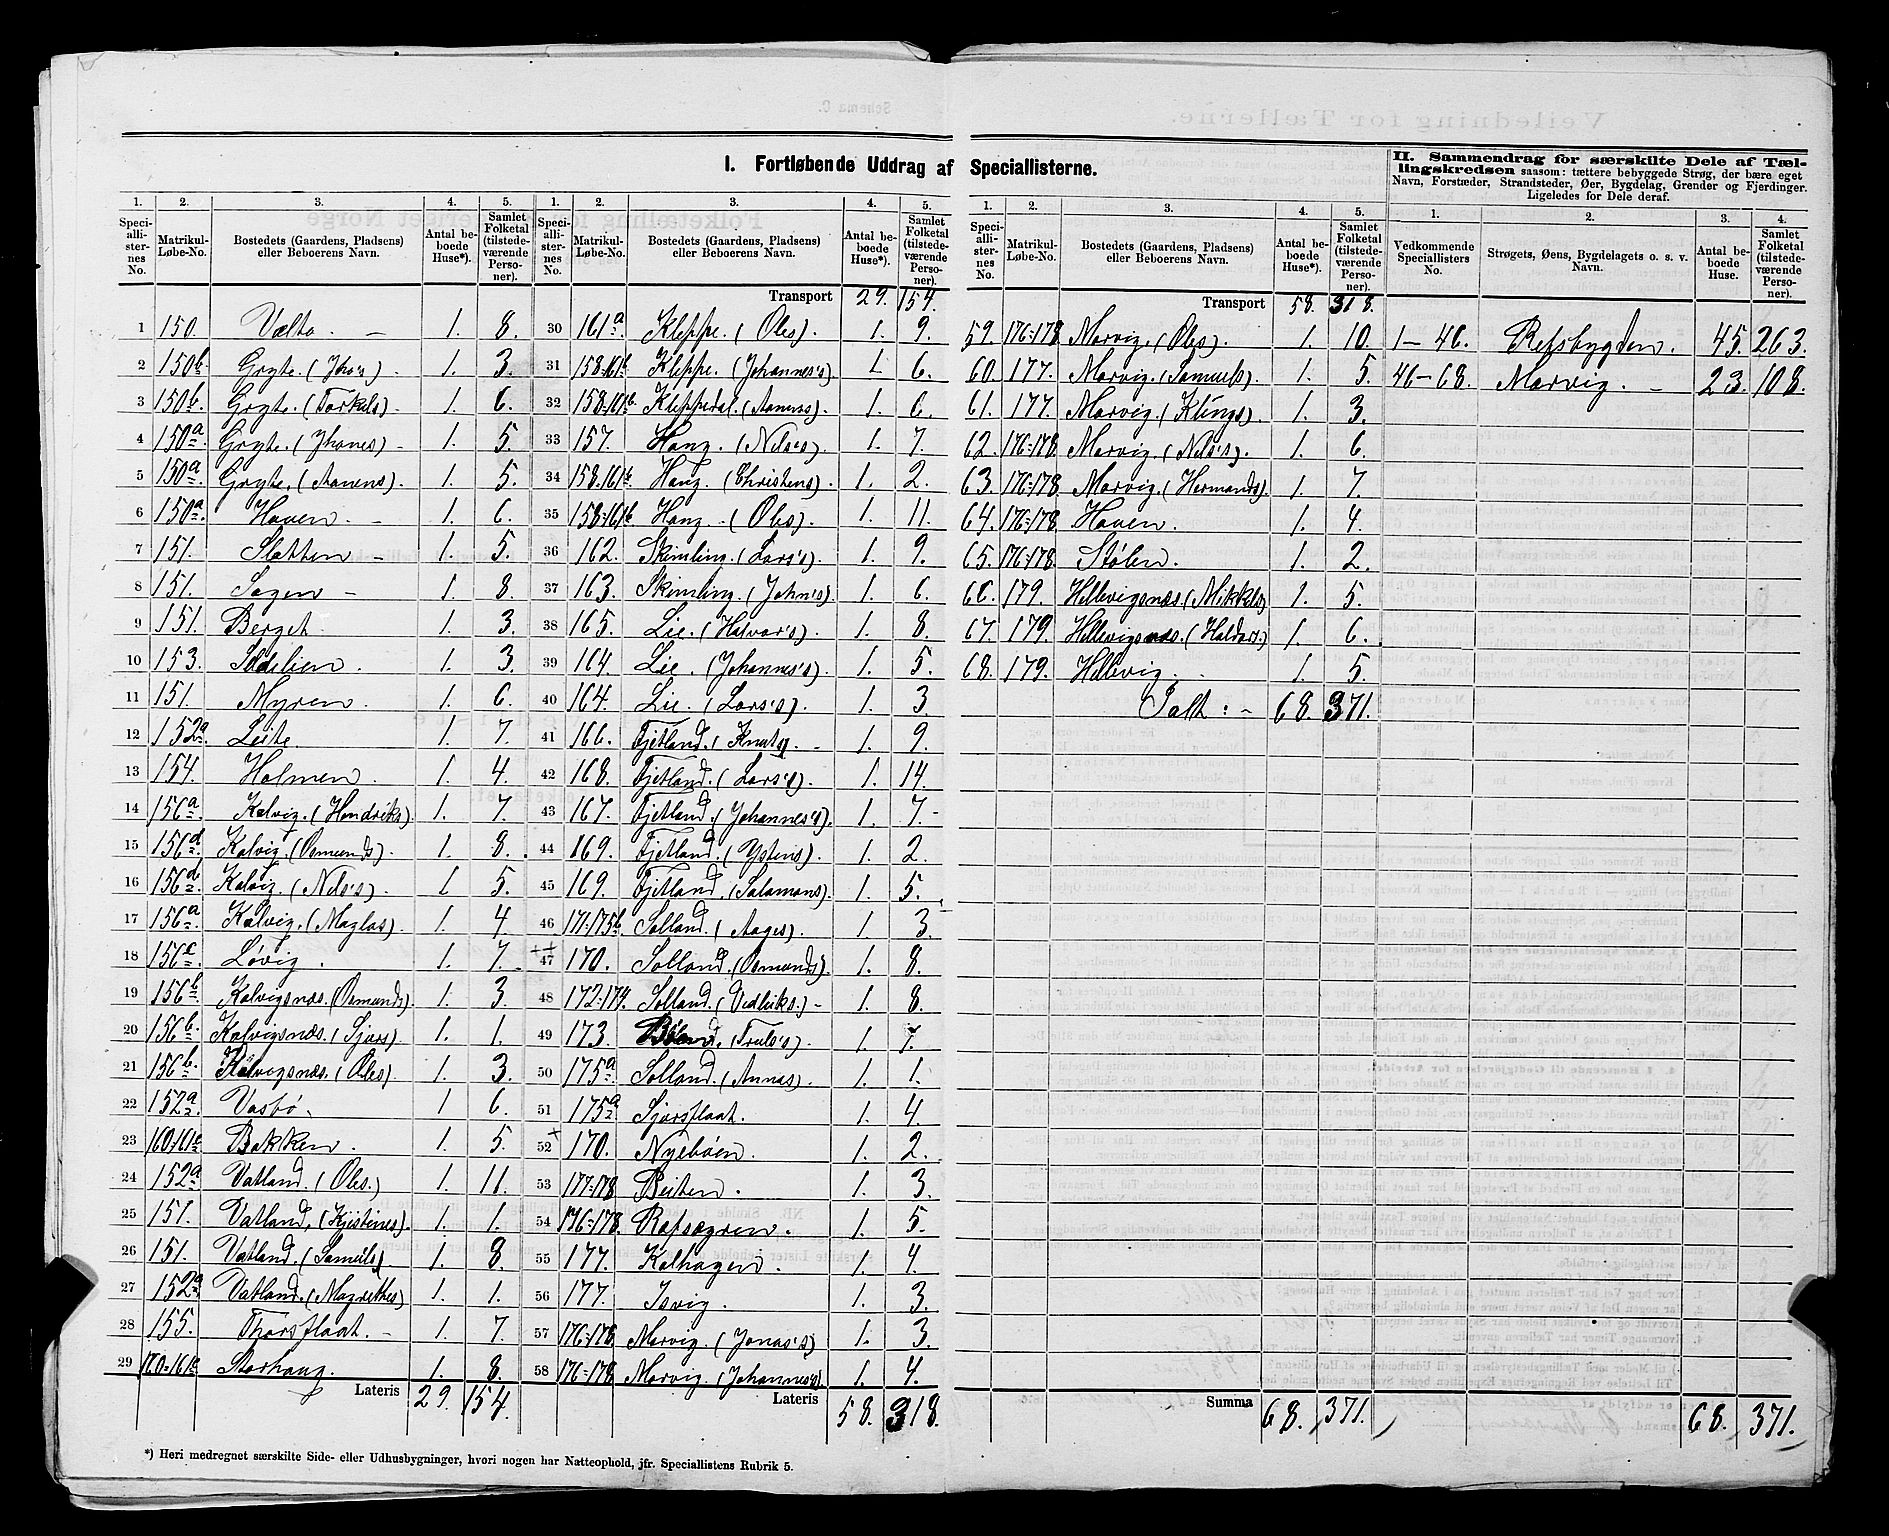 I. Fortløbende Uddrag af Speciallisterne.
1. Speciallisternes No. 2. Matrikul-Løbe-No. 3. Bostedets (Gaardens, Pladsens) eller Beboerens Navn. 4. Antal beboede Huse*). 5. Samlet Folketal (tilstedeværende Personer).
1 150. Vælta. – 1. 8.
2 150b Gryte. (Jho's) 1. 3.
3 150b. Gryte. (Torkels). 1. 6.
4 150a Gryte. (Jhones) – 1. 5.
5 150a Gryte. (Aanens). 1. 5.
6 150a. Haven. – 1. 6.
7 151. Sletten – 1. 5.
8 151. Hagen – 1. 8.
9 151. Berget. 1. 3.
10 153. 1. 3.
11 151. Myren. 1. 6.
12 152a. Leite. 1. 7.
13 154. Holmen. 1. 4.
14 156a Kalvig. (Hendriks) 1. 7.
15 156d Kalvig. (Osmunds). 1. 8.
16 156d Kalvig. (Nils's). 1 5.
17 156a Kalvig. (Maglas). 1. 4.
18 156c Løvig. 1. 7.
19 156b Kalvigsnæs. (Osmunds). 1. 3.
20 156b. Kalvigsnæs. (Sjurs). 1. 1.
21 156b. Kalvigsnæs. (Oles). 1. 3.
22 152a. Vasbø. 1 6.
23 160-161c Bakken. 1. 5.
24 152a Vatland. (Oles.) 1. 11.
25 151. Vatland, (Kjistines). 1. 1.
26 151. Vatland. (Samuels) 1. 8.
27 152a Vatland. (Magrethes) 1. 1.
28 155. Thorsflaat. – 1. 7.
29 160-161c Storhaug. 1. 8.
Lateris 29. 154.
1. Speciallisternes No. 2. Matrikul-Løbe-No. 3. Bostedets (Gaardens, Pladsens) eller Beboerens Navn. 4. Antal beboede Huse*). 5. Samlet Folketal (tilstedeværende Personer).
Transport 29. 154.
30 161a Kleppe. (Oles). 1. 9.
31 158.161b Kleppe. (Johannes's) 1. 6.
32 158.161b Kleppedal. (Aanens) 1. 6.
33 157. Haug. (Nils's) 1. 7.
34 158.161b Haug. (Christens) 1. 2.
35 158-161b Haug. – (Oles). 1. 11.
36 162. Skimling. (Lars's). 1. 9.
37 163. Skimling. (John's). 1. 6.
38 165. Lie. (Halvor's). 1. 8.
39 164. Lie. (Johannes's) 1. 5.
40 164. Lie. (Lars's). 1. 3
41 166. Fjetland. (Knuts). – 1. 9.
42 168. Fjetland. (Lars's). 1. 14.
43 167. Fjetland. (Johannes's). 1. 7.
44 169. Fjetland. (Ystens). 1. 2.
45 169. Fjetland. (Salamons). 1. 5.
46 171-175b. Solland. (Aages). 1. 3.
47 170. Solland. (Osmunds) 1. 8.
48 172-174. Solland. (Vedleiks.) – 1. 8.
49 173. (Truls's) 1. 7.
50 175a Solland. (Annas). 1. 1.
51 175a Sjursflaat. 1. 4.
52 170. Nyebøen. 1. 2.
53 177-178 Beiten. 1. 3.
54 176-178. 1. 5.
55 177. Kalhagen. 1. 4.
56 177. Isvig. 1. 3.
57 176-178 Marvig. (Jonas's) 1. 3.
58 176-178 Marvig. (Johannes's). 1. 4.
Lateris 58. 318.
1. Speciallisternes No. 2. Matrikul-Løbe-No. 3. Bostedets (Gaardens, Pladsens) eller Beboerens Navn. 4. Antal beboede Huse*). 5. Samlet Folketal (tilstedeværende Personer).
Transport 58. 318.
59. 176-178 Marvig. (Oles). 1. 10.
60. 177. Marvig. (Samuels) 1. 5.
61. 177. Marvig. (Klungs) 1. 3.
62. 176-178 Marvig. (Nils's). 1. 6.
63. 176-178 Marvig. (Hermands). 1. 7.
64. 176-178 Haven. 1. 4.
65. 176-178. Stølen. 1. 2.
66. 179. Hellevigsnæs. (Mikkels) 1. 5.
67. 179. Hellevigsnæs. (Haldors.) 1. 6.
68. 179. Hellevig. 1. 5.
Ialt : – 68. 371.
Summa 68. 371.
II. Sammendrag for særskilte Dele af Tællingskredsen saasom: tættere bebyggede Strøg, der bære eget Navn, Forstæder, Strandsteder, Øer, Bygdelag, Grender og Fjerdinger. Ligeledes for Dele deraf.
1. Vedkommende Speciallisters No. 2. Strøgets, Øens, Bygdelagets o. s. v. Navn. 3. Antal beboede Huse. 4. Samlet Folketal (tilstedeværende Personer).
1–46. Refsbygden. 45. 263.
46–68. Marvig. – 23. 108.
68. 371.
*) Heri medregnet særskilte Side- eller Udhusbygninger, hvori nogen har Natteophold, jfr. Speciallistens Rubrik 5.